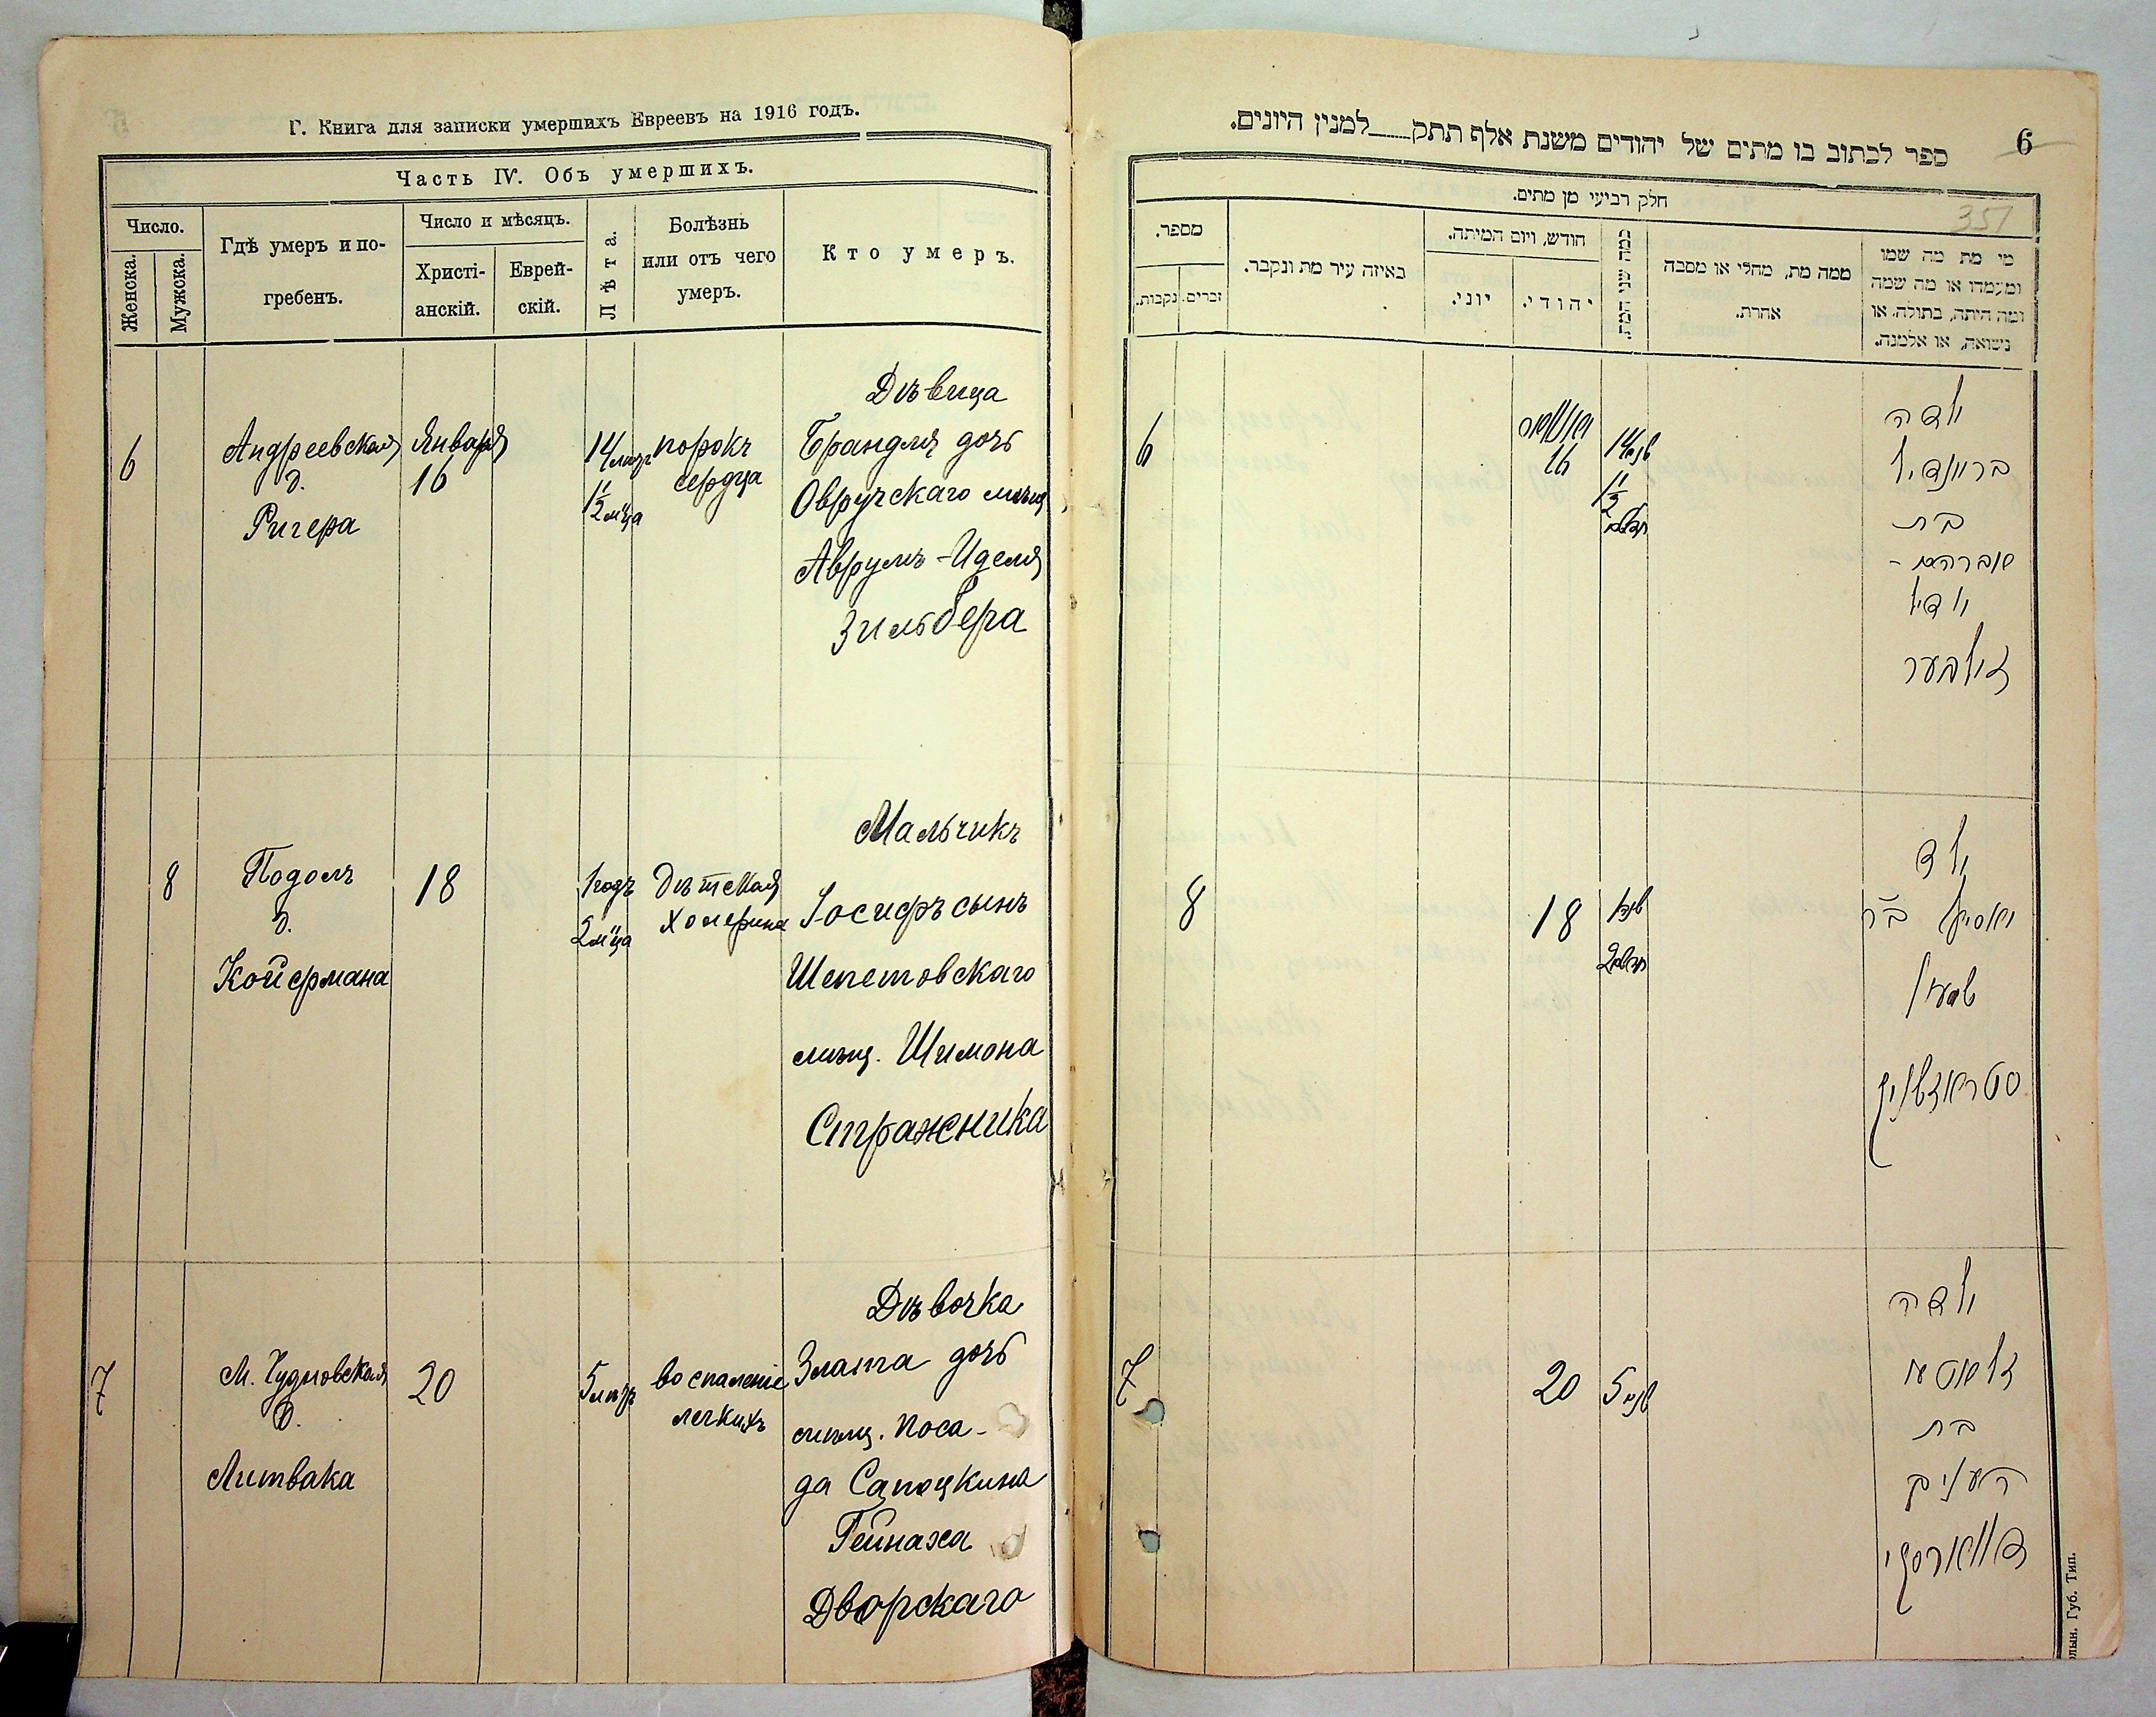 Г. Книга для записки умершихъ Евреевъ на 1916 годъ.
Часть IV. Объ умершихъ.
Число.
Женска.
Мужска.
Гдѣ умеръ и по-
гребенъ.
Число и мѣсяцъ.
Христі-
анскій.
Еврей-
скій.
Лѣта.
Болѣзнь
или отъ чего
умеръ.
Кто умеръ.
6
Андреевская
д.
Ригера
Января
16
14 лѣтъ
1½ м-ца
порокъ
сердца
Дѣвица
Брандля дочь
Овручскаго мѣщ
Аврумъ-Иделя
Зильбера
8
Подолъ
д.
Койфмана
18
1 годъ
2 м-ца
Дѣтская
холерина
Мальчикъ
Іосифъ сынъ
Шепетовскаго
мѣщ. Шимона
Стражника
7
М. Чудновская
д.
Литвака
20
5 лѣтъ
воспаленіе
легкихъ
Дѣвочка
Злата дочь
мѣщ. поса-
да Сапоцкина
Гейнаха
Дворскаго
6
ספר לכתוב בו מתים של יהודים משנת אלף תתק___למנין היונים.
351
חלק רביעי מן מתים.
מספר.
נקבות.
זכרים.
באיזה עיר מת ונקבר.
חודש, ויום המיתה.
יוני.
יהודי.
כמה שני המת.
ממה מת, מחלי או מסבה
אחרת.
מי מת מה שמו
ומעמדו או מה שמה
ומה היתה, בתולה, או
נשואה, או אלמנה.
6
יאנואר
16
14 שנה
1½
חדשים
ילדה
בריינדיל
בת
אברהם -
יודיל
זילבער
8
18
שנה 1
2 חדשים
ילד
יאסיף ב"ר
שמעון
סטראזשניק
7
20
5 שנים
ילדה
זלאטע
בת
העניך
דווארסקי
лын. Губ. Тип.